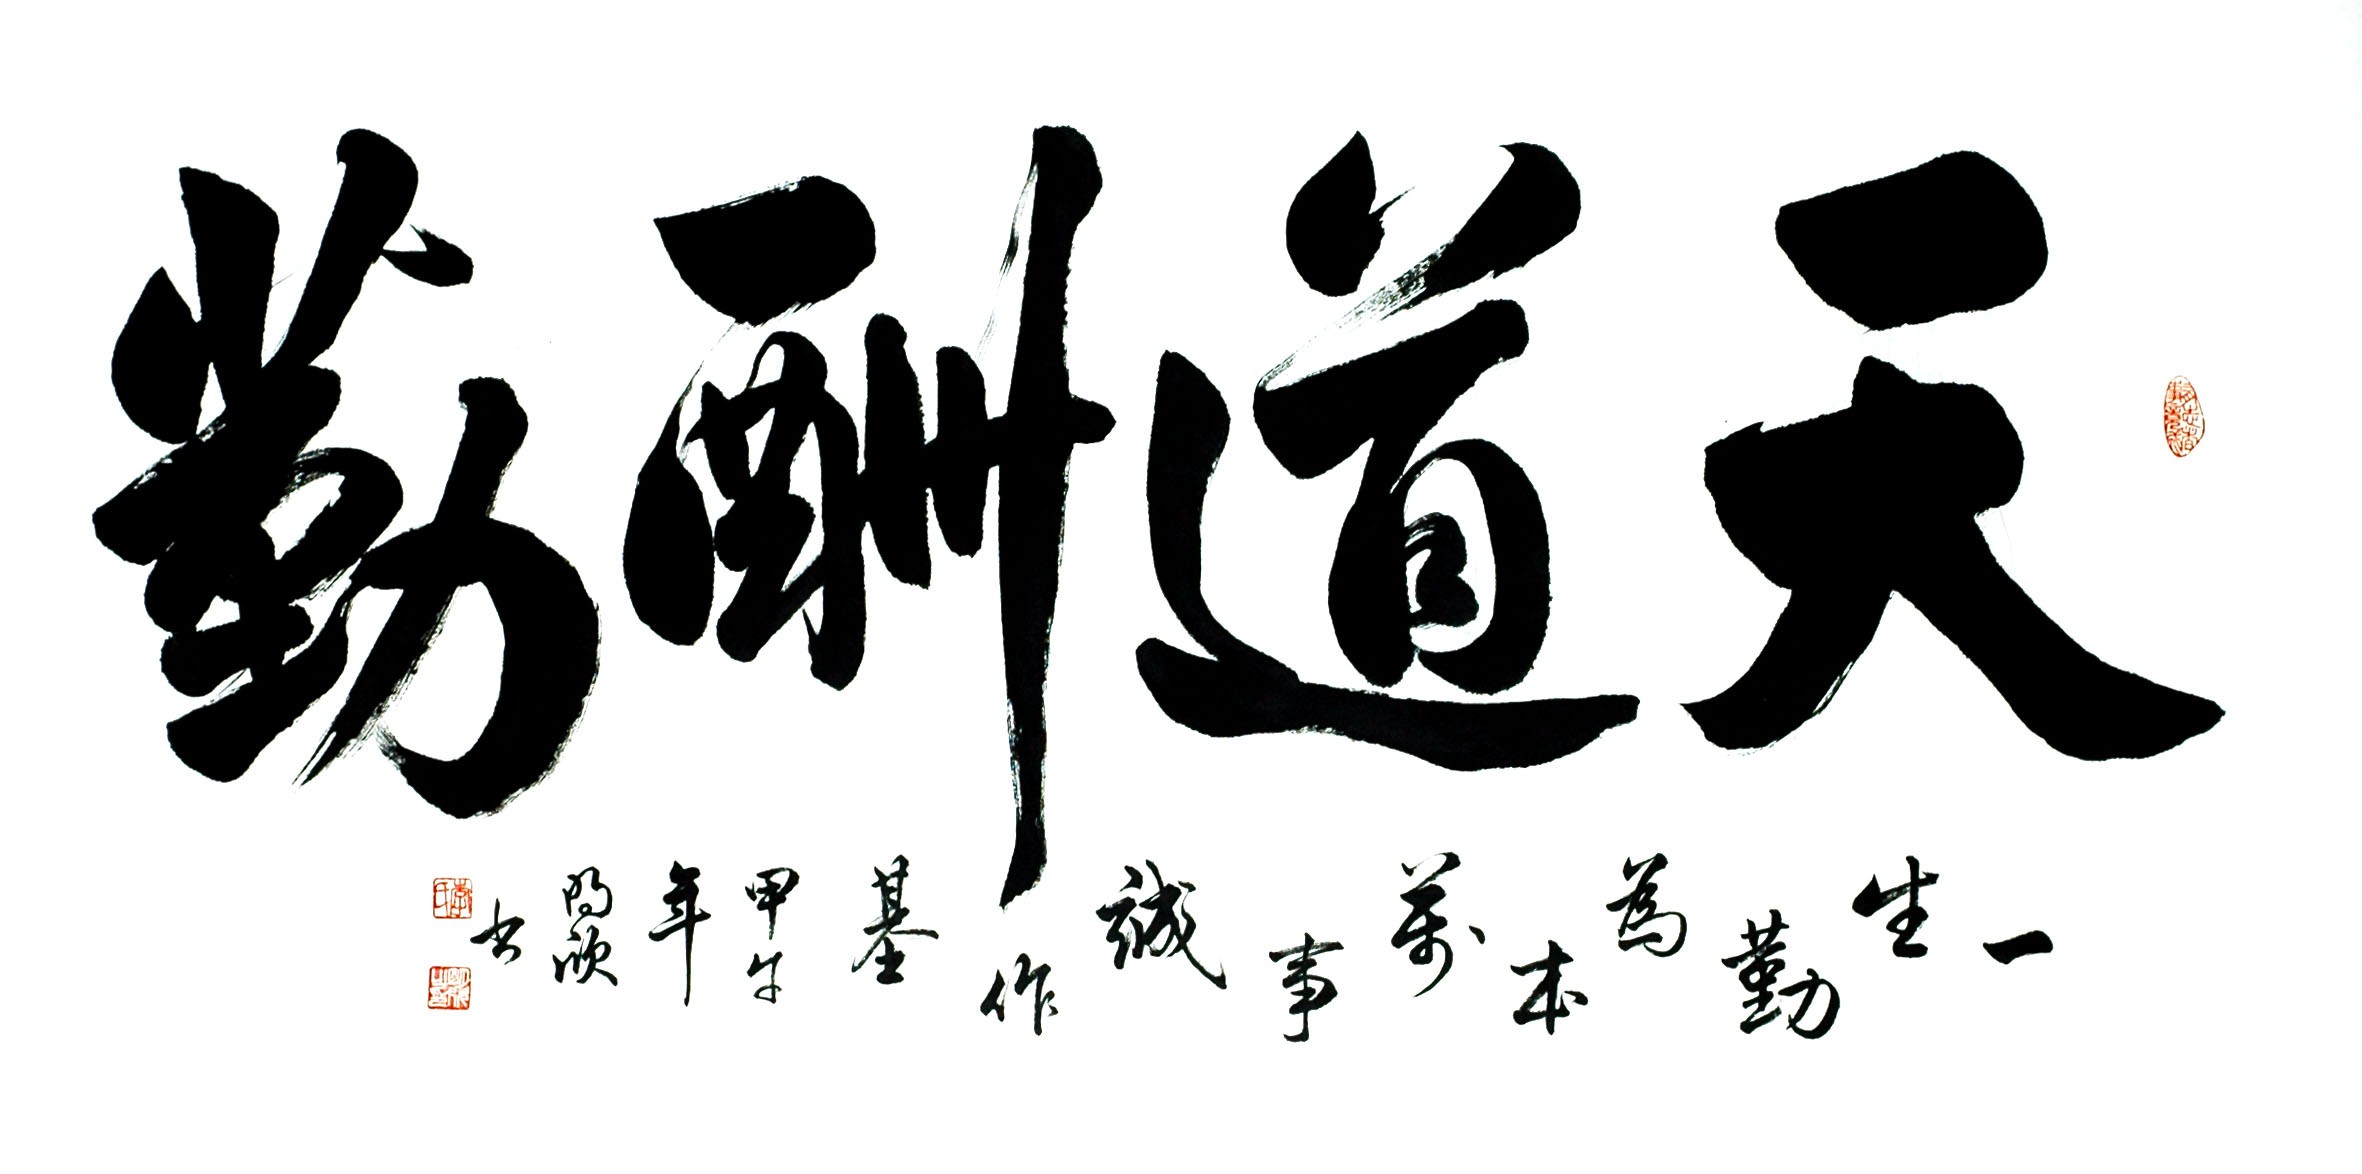 天道酬勤
一生勤為本萬事誠作基甲午年欣书